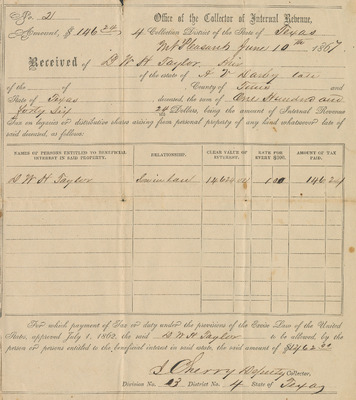 No. 2 Office of the Collector of Internal Revenue,
Amount, $ 146 24 4 Collection District of the State of Texas
Mt Pleasant June 10th 1867.
Received of D W H Taylor,
of the estate of A V Darby late
of the of County of
State of Texas deceased, the sum of One Hundred and
Forty Six 24 Dollars, being the amount of Internal Revenue
Tax on legacy or distributive share arising from personal property of any kind whatsoever late of
said deceased, as follows:
NAMES OF PERSONS ENTITLED TO BENEFICIAL INTEREST IN SAID PROPERTY. RELATIONSHIP. CLEAR VALUE OF INTEREST. RATE FOR EVERY $100. AMOUNT OF TAX PAID.
D W H Taylor 14624 100 146 24
For which payment of Tax or duty under the provisions of the Excise Law of the United
States, approved July 1, 1862, the said D W H Taylor to be allowed, by the
person or persons entitled to the beneficial interest in said estate, the said amount of
Cherry Deputy Collector,
Division No. 13 District No. 4 State of Texas